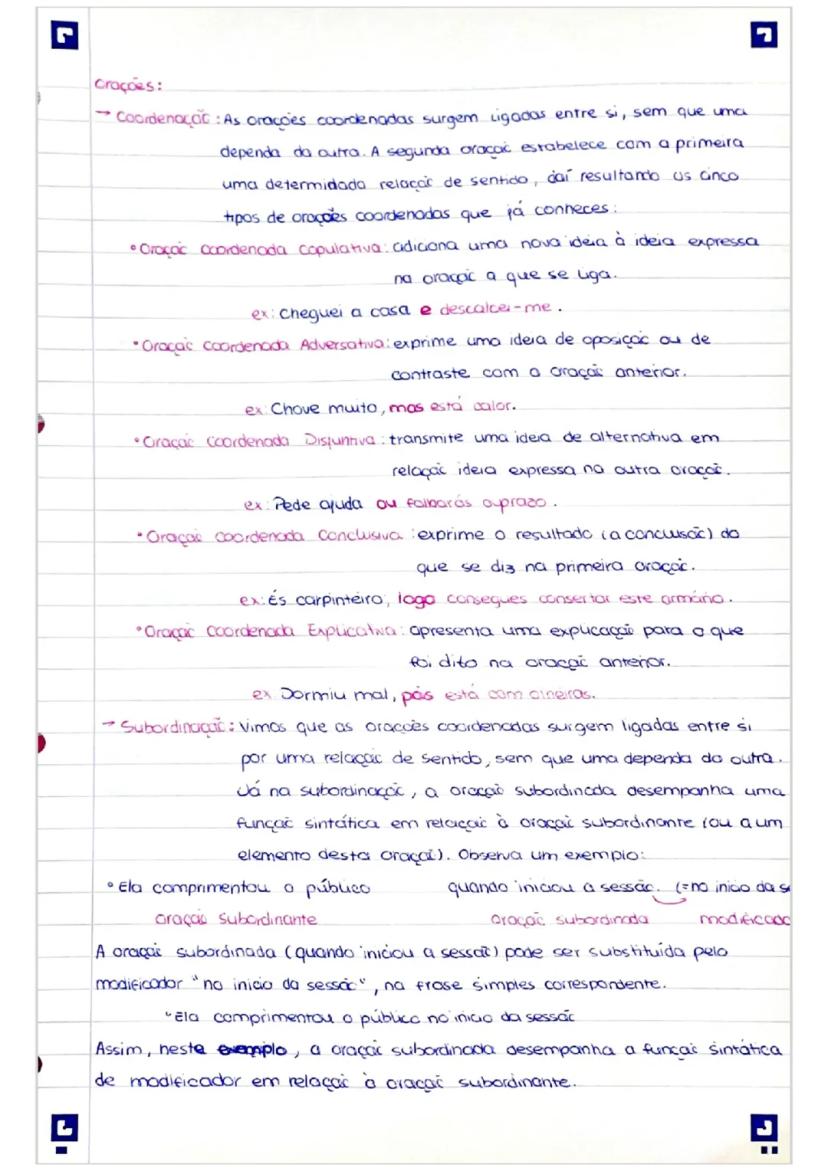 Orações:
→ Coordenação: As orações coordenadas surgem ligadas entre si, sem que uma
dependa da outra. A segunda oração estabelece com a primeira
uma determidada relação de sentido, daí resultando os cinco
tipos de orações coordenadas que já conheces:
• Oração Coordenada Copulativa: adiciona uma nova ideia à ideia expressa
na oração a que se liga.
ex: Cheguei a casa e descalcei-me.
• Oração Coordenada Adversativa: exprime uma ideia de oposição ou de
contraste com a oração anterior.
ex: Chove muito, mas está calor.
• Oração Coordenada Disjuntiva: transmite uma ideia de alternativa em
relação ideia expressa na outra oração.
ex: Pede ajuda ou falharás o prazo.
• Oração Coordenada Conclusiva: exprime o resultado (a conclusão) do
que se diz na primeira oração.
ex: És carpinteiro, logo consegues consertar este armário.
• Oração Coordenada Explicativa: apresenta uma explicação para o que
foi dito na oração anterior.
ex Dormiu mal, pois está com olheiras.
→ Subordinação: Vimos que as orações coordenadas surgem ligadas entre si
por uma relação de sentido, sem que uma dependa da outra.
Já na subordinação, a oração subordinada desempanha uma
função sintática em relação à oração subordinante (ou a um
elemento desta oração). Observa um exemplo:
• Ela comprimentou o público quando iniciou a sessão. (=no início da s
oração subordinante oração subordinada modificado
A oração subordinada (quando iniciou a sessão) pode ser substituída pelo
modificador "no início da sessão", na frase simples correspondente.
"Ela comprimentou o público no início da sessão
Assim, neste exemplo, a oração subordinada desempanha a função sintática
de modificador em relação à oração subordinante.